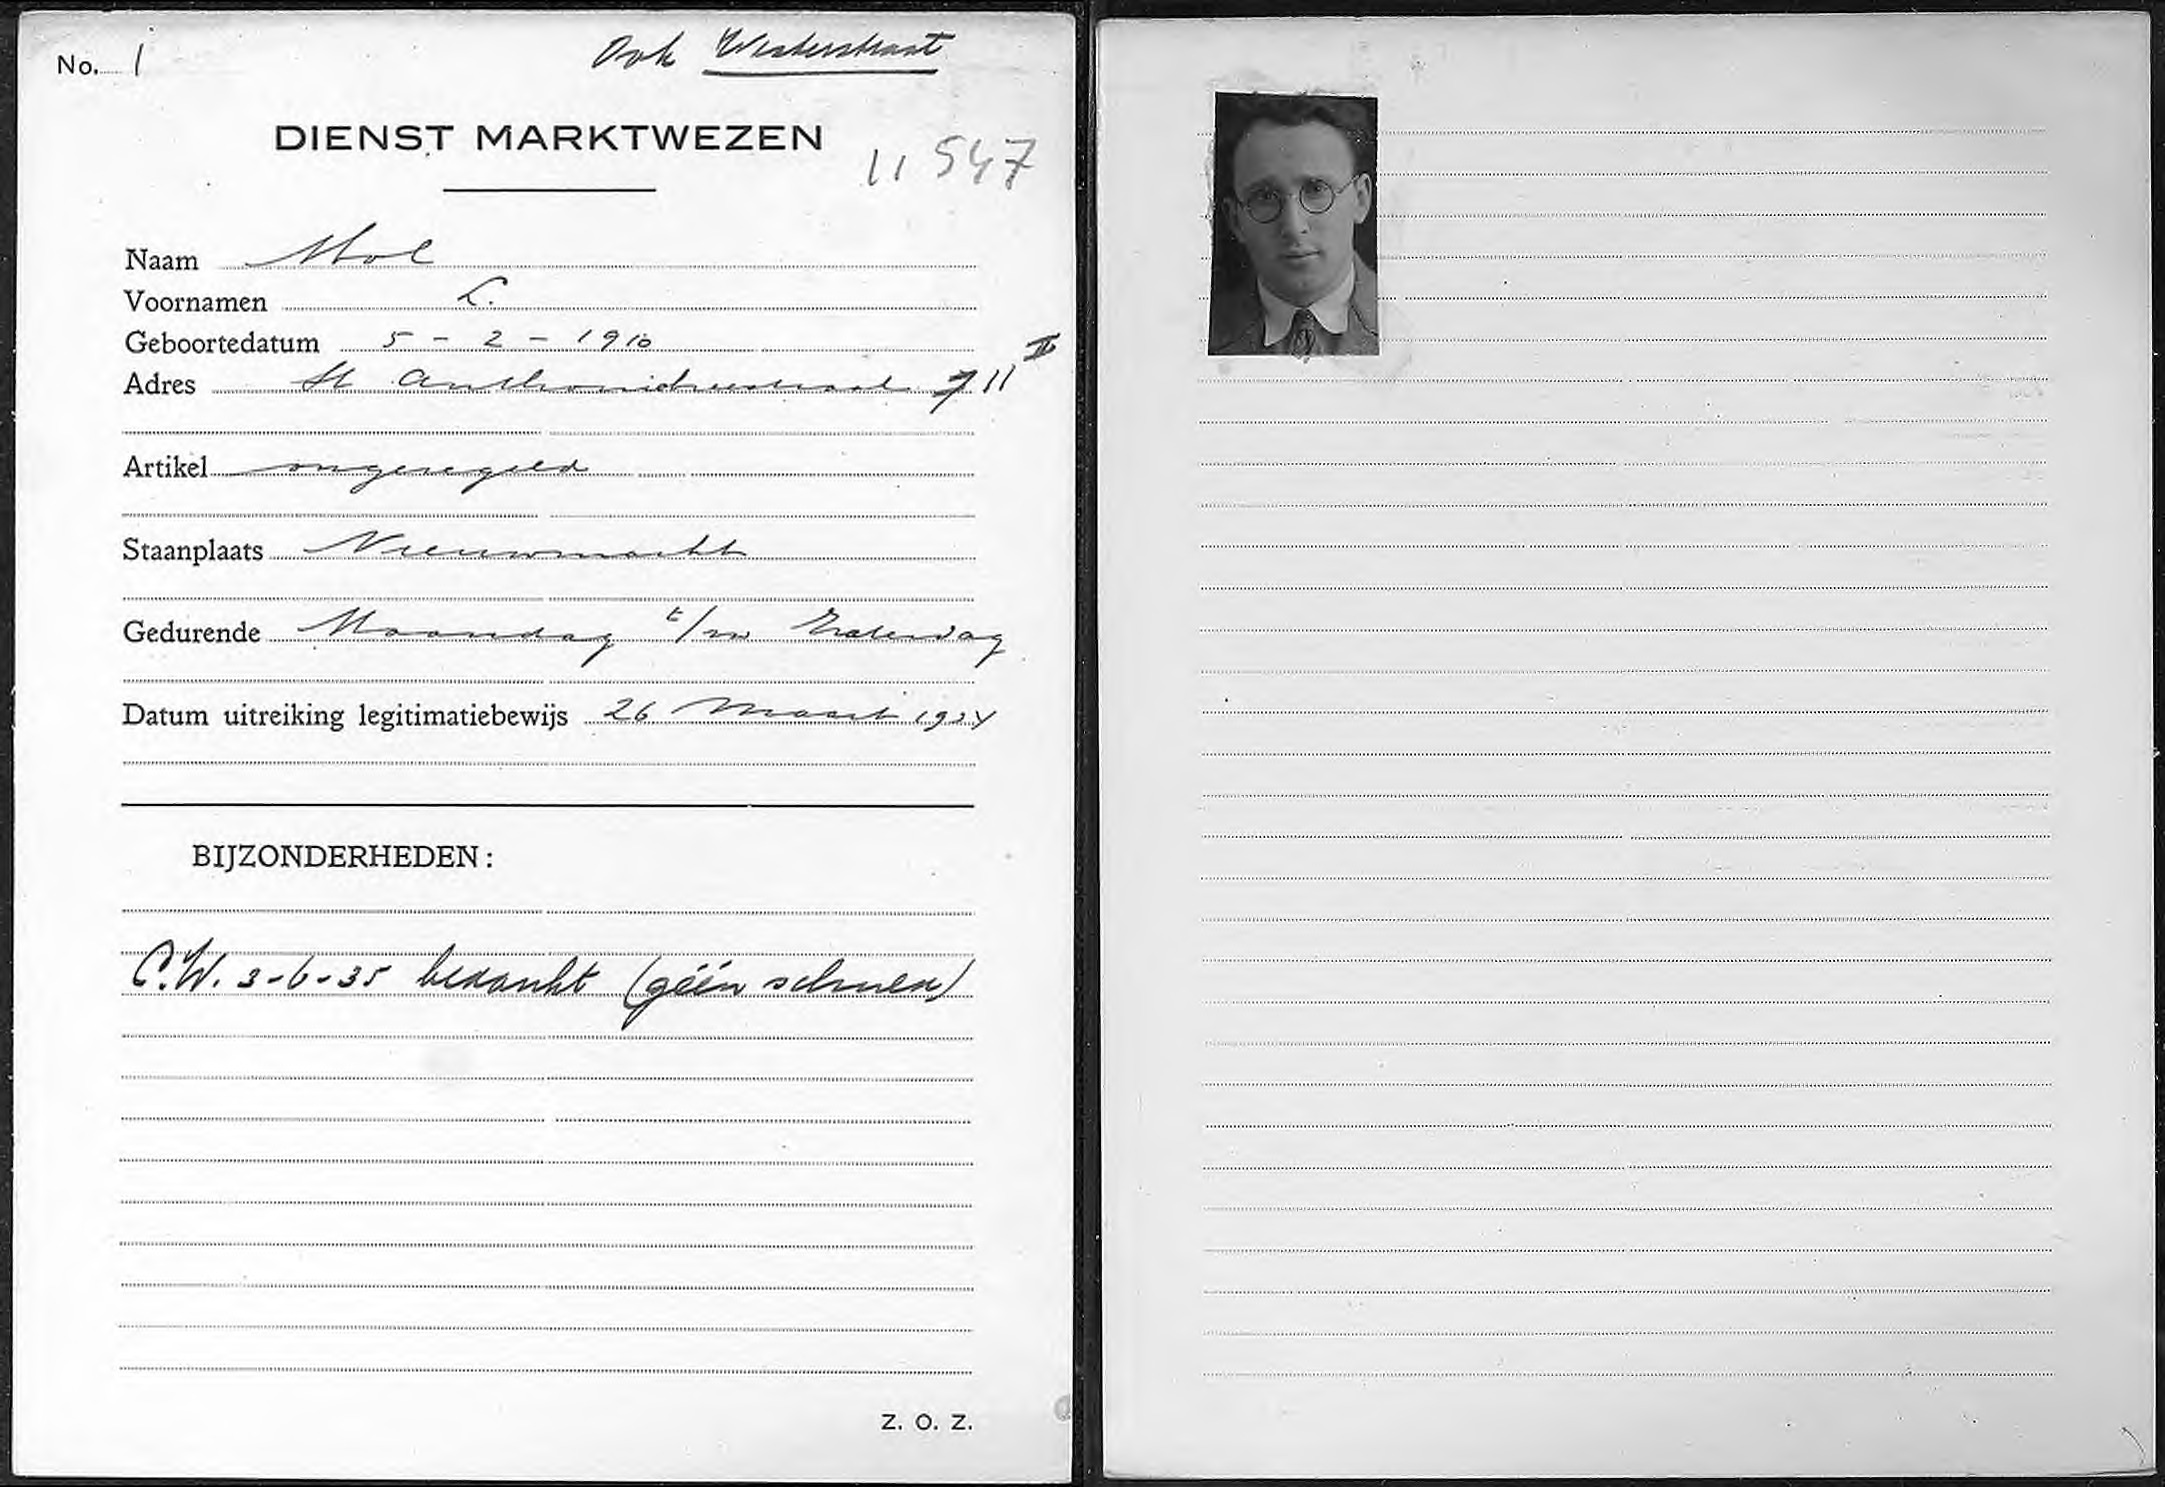 No. 1
Ook Westerstraat
DIENST MARKTWEZEN
11 547
Naam Mol
Voornamen L.
Geboortedatum 5 - 2 - 1910
Adres St Anthoniebreestraat 11 II
Artikel ongeregeld
Staanplaats Nieuwmarkt
Gedurende Maandag t/m Zaterdag
Datum uitreiking legitimatiebewijs 26 Maart 1934
BIJZONDERHEDEN:
C.W. 3-6-35 bedankt (géén schulden)
Z. O. Z.